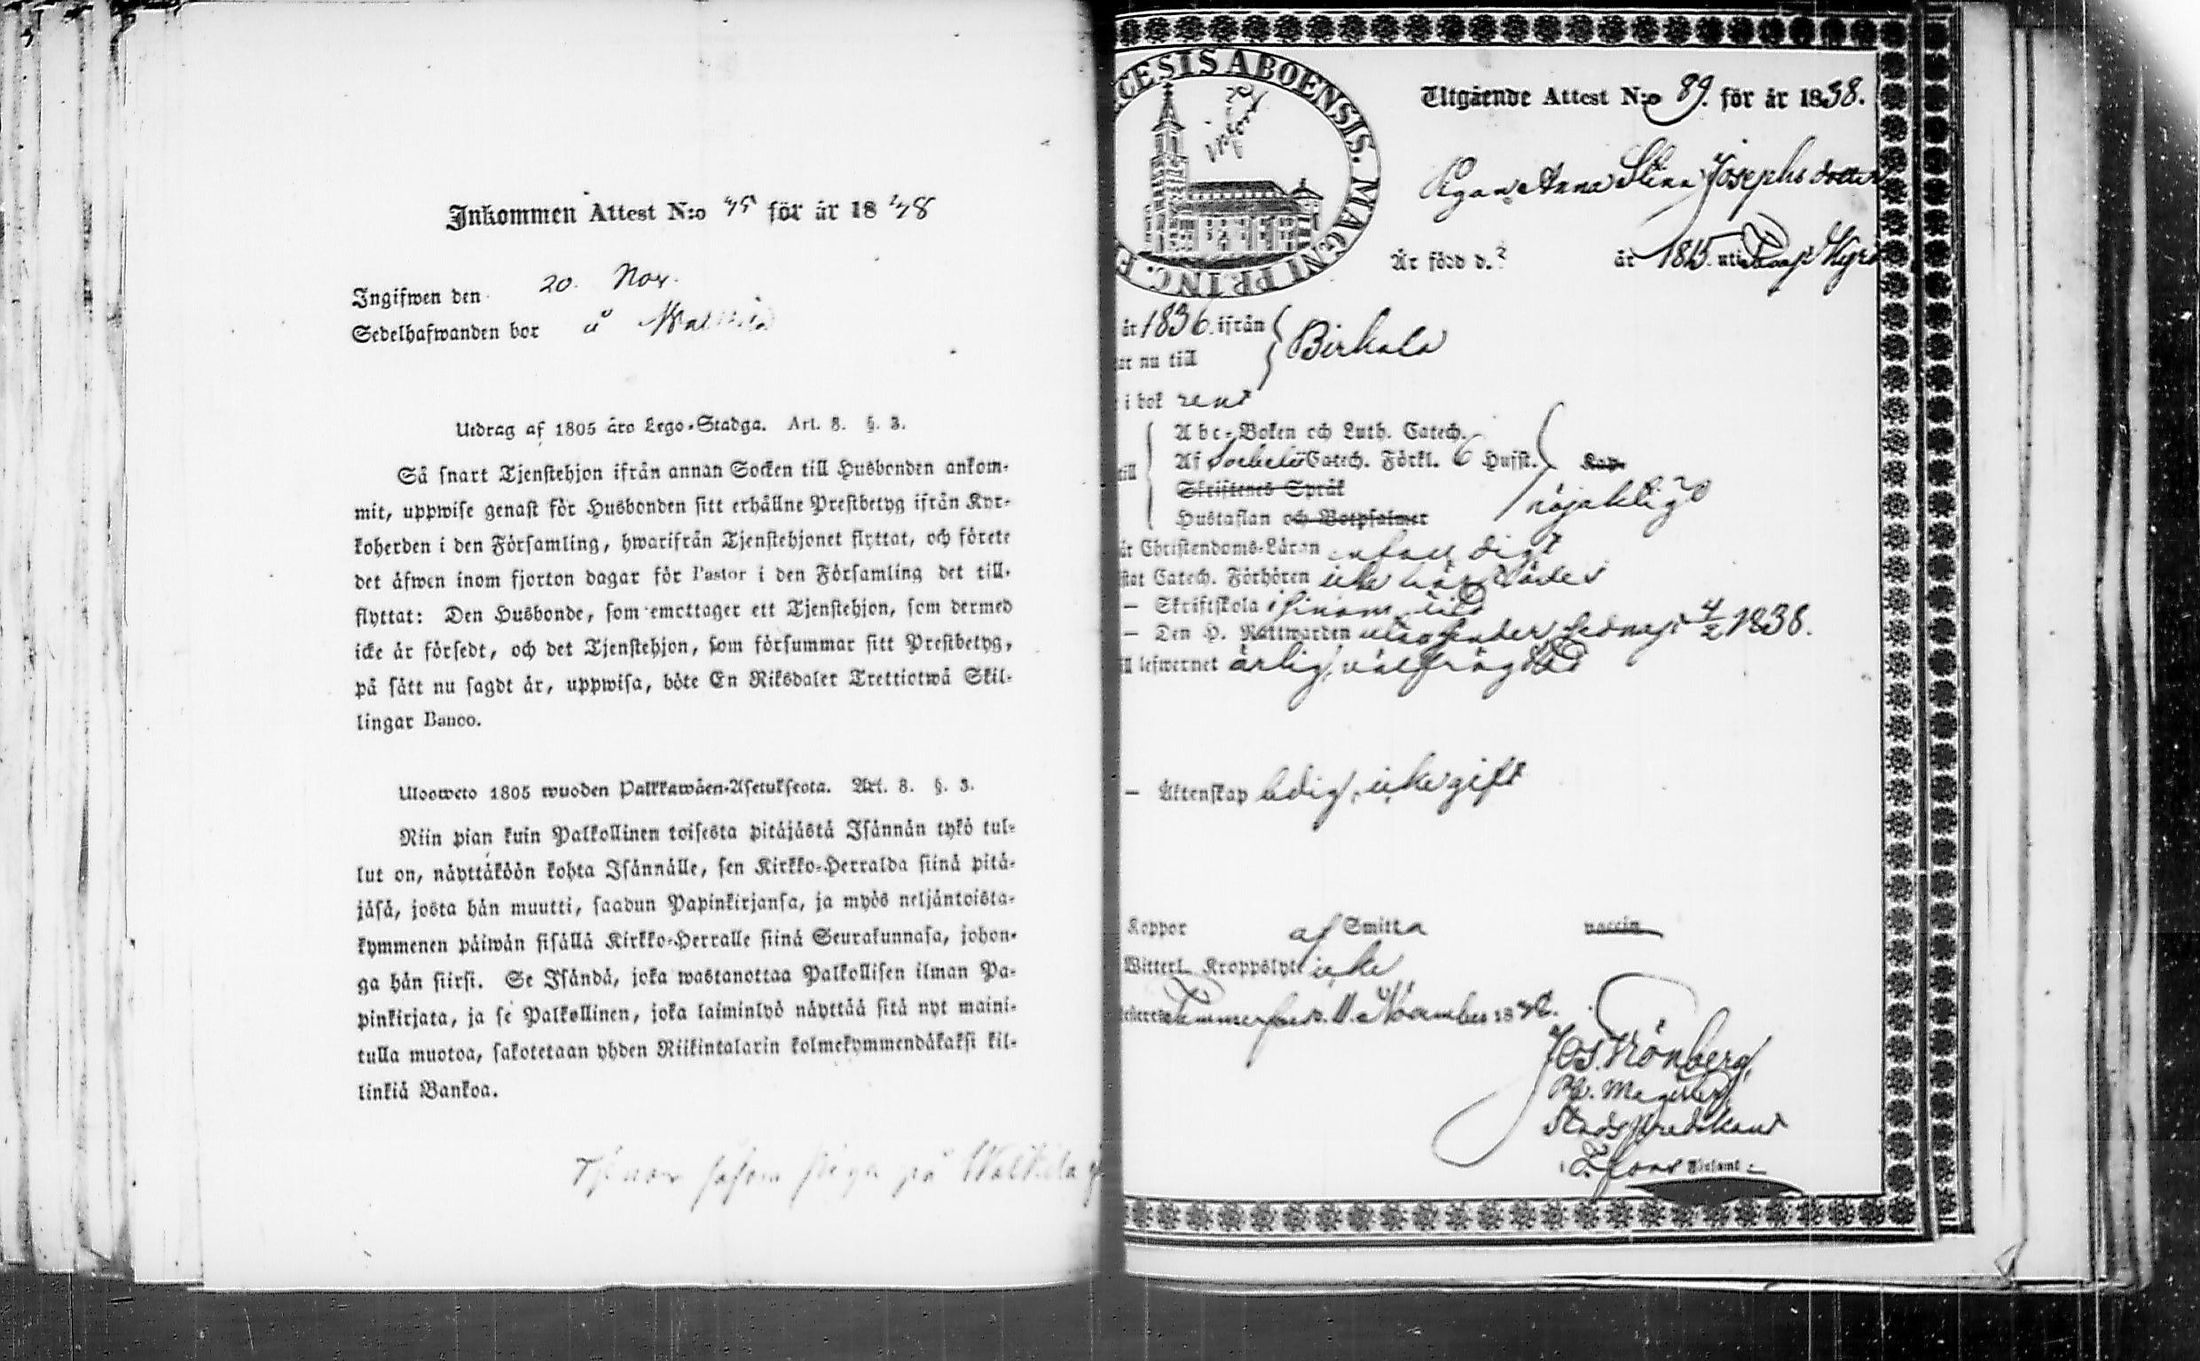 Inkommen Attest N:o 75 för år 1838
Ingifwen den 20. Nov.
Sedelhafwanden bor å
Utdrag af 1805 års Lego-Stadga. Art. 8. §. 3.
Så snart Tjenstehjon ifrån annan Socken till Husbonden ankom-
mit, uppwise genast för Husbonden sitt erhållne Prestbetyg ifrån Kyr-
koherden i den Församling, hwarifrån Tjenstehjonet flyttat, och förete
det äfwen inom fjorton dagar för Pastor i den Församling det till-
flyttat: Den Husbonde, som emottager ett Tjenstehjon, som dermed
icke är försedt, och det Tjenstehjon, som försummar sitt Prestbetyg,
på sätt nu sagdt är, uppwisa, böte En Riksdaler Trettiotwå Skil-
lingar Banco.
Ulosweto 1805 wuoden Palkkawäen-Asetuksesta. Art. 8. §. 3.
Niin pian kuin Palkollinen toisesta pitäjästä Isännän tykö tul-
lut on, näyttäköön kohta Isännälle, sen Kirkko-Herralda siinä pitä-
jäsä, josta hän muutti, saadun Papinkirjansa, ja myös neljäntoista-
kymmenen päiwän sisällä Kirkko-Herralle siinä Seurakunnasa, johon-
ga hän siirsi. Se Isändä, joka wastanottaa Palkollisen ilman Pa-
pinkirjata, ja se Palkollinen, joka laiminlyö näyttää sitä nyt maini-
tulla muotoa, sakotetaan yhden Riikintalarin kolmekymmendäkaksi kil-
linkiä Bankoa.
Tjenar såsom piga på Walkila
CESIS ABOENSIS. MAGNI PRINC. F
Utgående Attest N:o 89. för år 1838.
Pigan Anna Stina Josephsdotter
Är född d. ? år 1815. uti Kyro
år 1836. ifrån Birkala
er nu till
i bok rent
Abc-Boken och Luth. Catech.
till Af Sorbelii Catech. Förkl. 6 Hufst.
Skriftenes Språk
Hustaflan och Botpsalmer nöjaktigt
är Christendoms-Läran enfaldigt
stat Catech. Förhören
— Skriftskola i sinom tid
— Den H. Nattwarden 4/2 1838.
ill lefwernet ärlig, välfrägdad
— Äktenskap ledig, icke gift
Koppor af Smitta vaccin
Witterl. Kroppslyte icke
Tammerfors d. 11 November 1838.
Jos. Grönberg,
Ph. Magister,
Stadspredikant
i T:fors